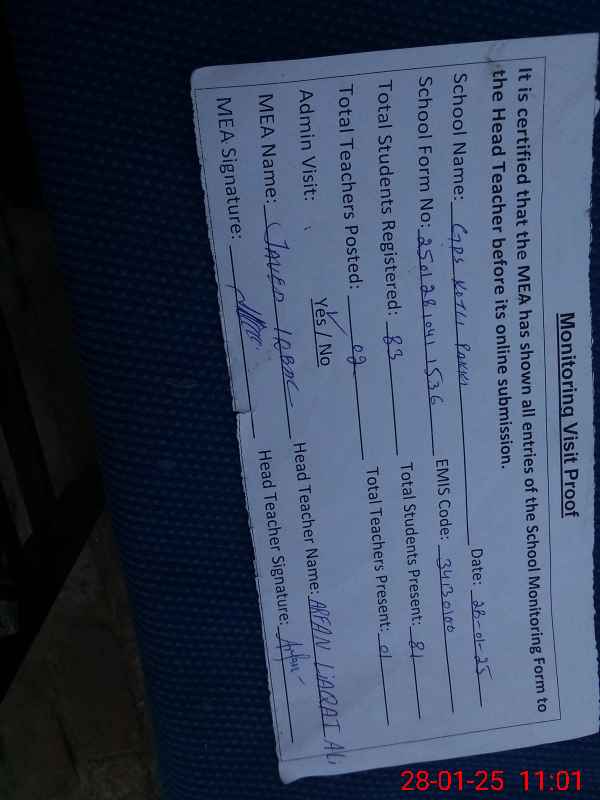 Monitoring Visit Proof
It is certified that the MEA has shown all entries of the School Monitoring Form to
the Head Teacher before its online submission.
School Name: GPS KOTLI PAKKI Date: 28-01-25
School Form No: 2501281041 1536 EMIS Code: 34130100
Total Students Registered: 83 Total Students Present: 81
Total Teachers Posted: 02 Total Teachers Present: 01
Admin Visit: Yes / No
MEA Name: JAVED IQBAL Head Teacher Name: ARFAN LIAQAT ALI
MEA Signature: Head Teacher Signature: Arfan
28-01-25 11:01